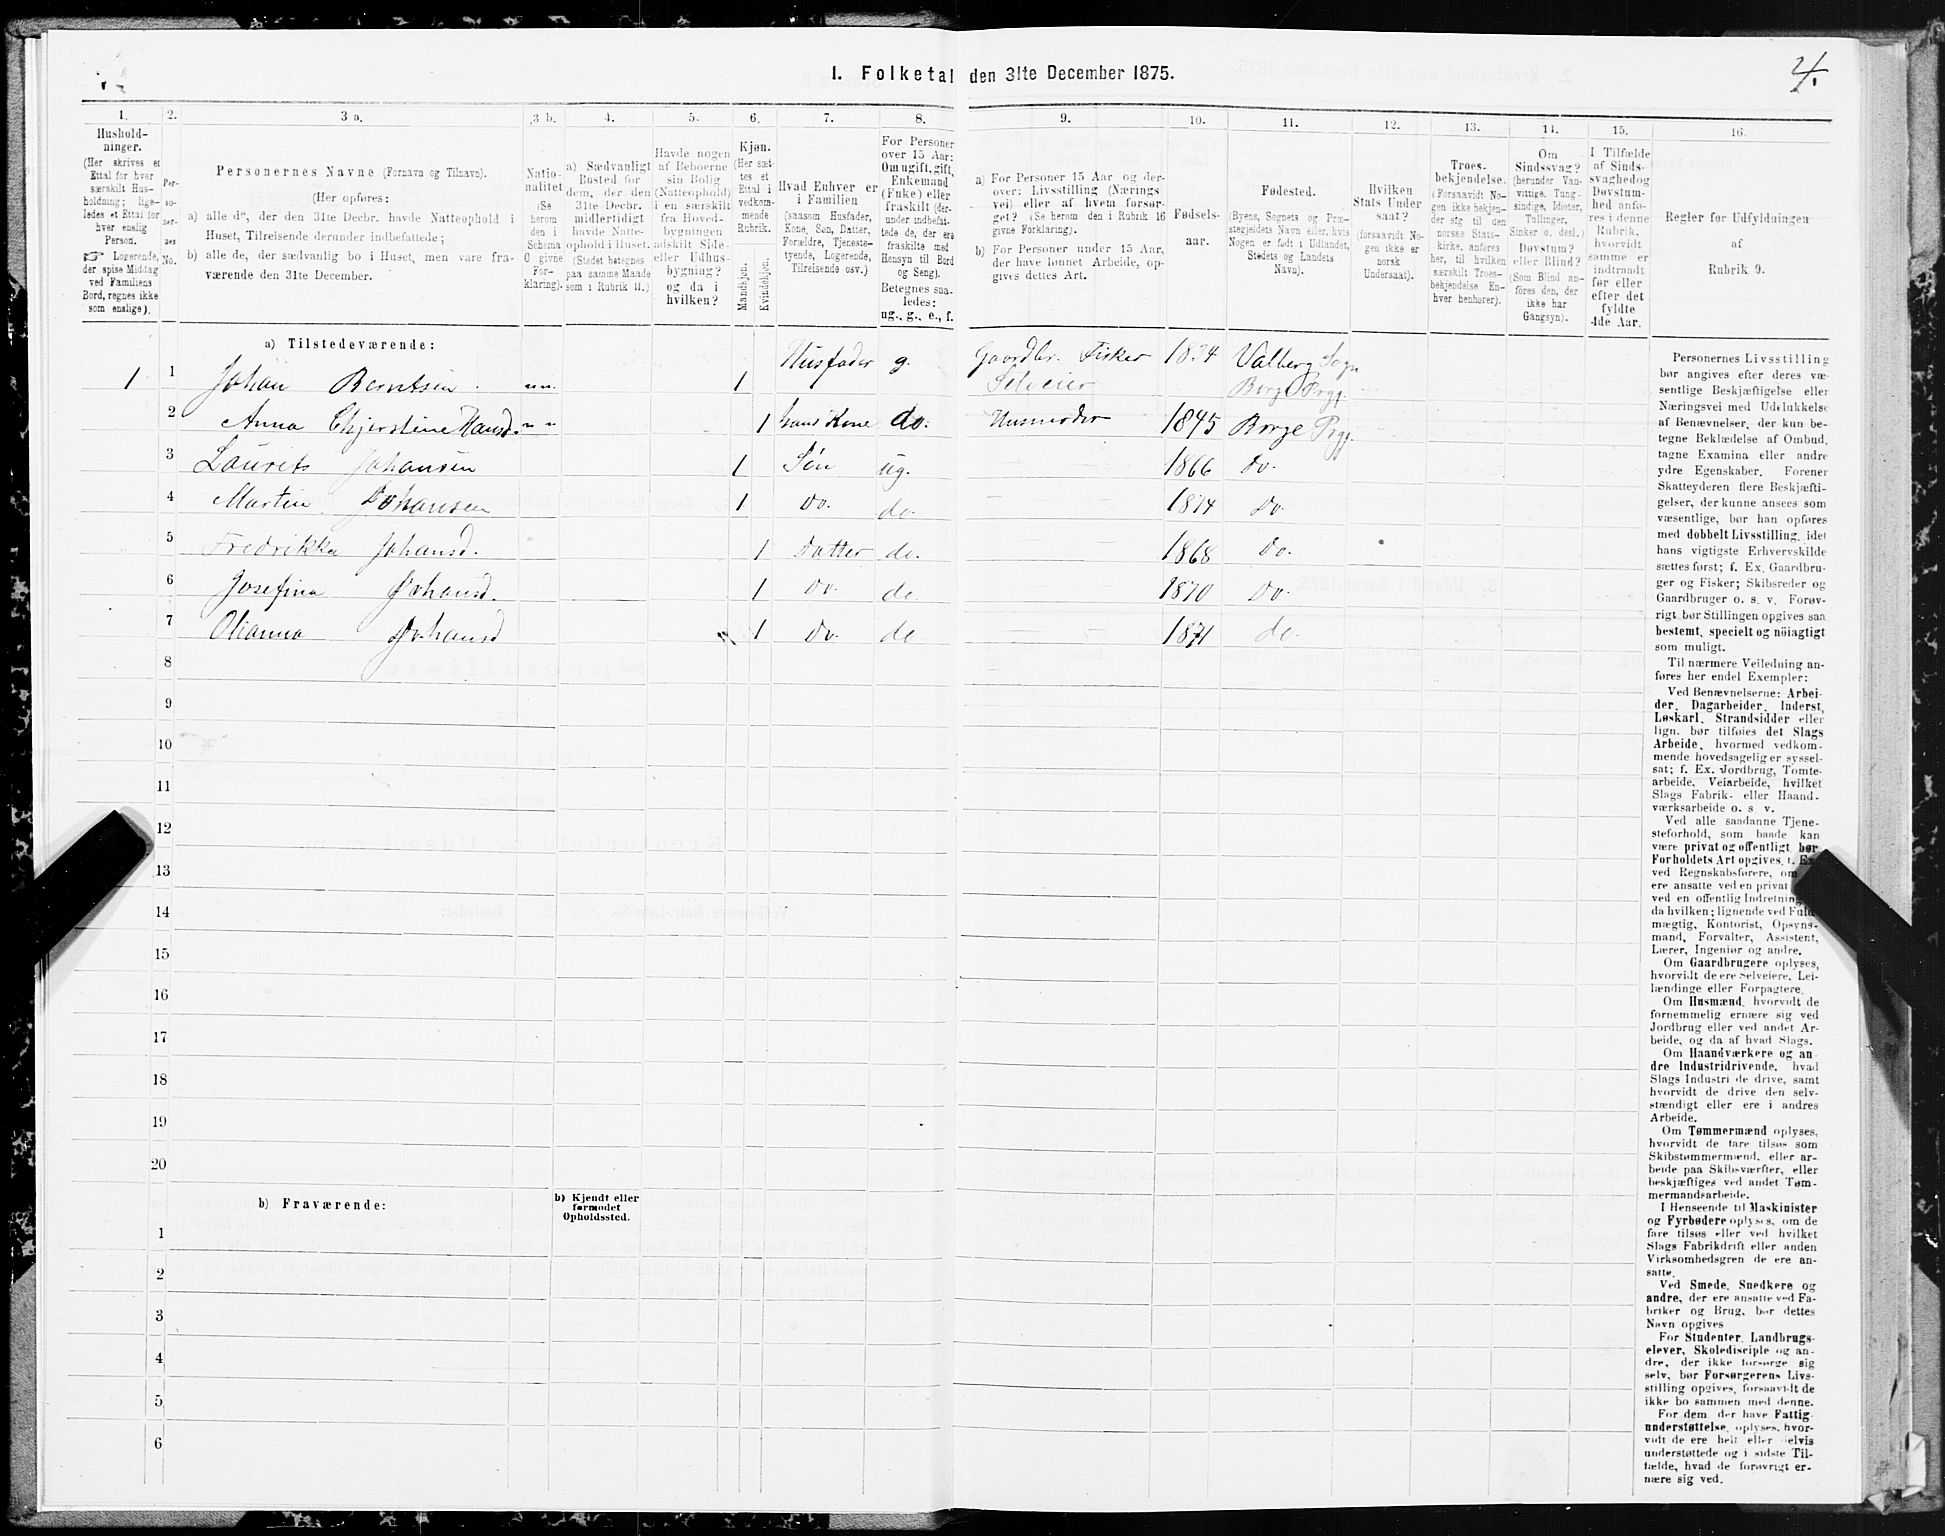 1. Folketal den 31te December 1875.
4.
1. 2. 3 a. 3 b. 4. 5. 6. 7. 8. 9. 10. 11. 12. 13. 14. 15. 16.
Hushold-
ninger.
(Her skrives et
Ettal for hver
særskilt Hus-
holdning; lige-
ledes et Ettal for
hver enslig
Person.
☞ Logerende,
der spise Middag
ved Familiens
Bord, regnes ikke
som enslige).
Per-
so-
ner-
nes
No.
Personernes Navne (Fornavn og Tilnavn).
(Her opføres:
a) alle de, der den 31te Decbr. havde Natteophold i
Huset, Tilreisende derunder indbefattede;
b) alle de, der sædvanlig bo i Huset, men vare fra-
værende den 31te December.
Natio-
nalitet
(Se
herom
den i
Schema
O givne
For-
klaring).
a) Sædvanligt
Bosted for
dem, der den
31te Decbr.
midlertidigt
havde Natte-
ophold i Huset.
(Stedet betegnes
paa samme Maade
som i Rubrik 11.)
Havde nogen
af Beboerne
sin Bolig
(Natteophold)
i en særskilt
fra Hoved-
bygningen
adskilt Side-
eller Udhus-
bygning?
og da i
hvilken?
Kjøn.
(Her sæt-
tes et
Ettal i
vedkom-
mende
Rubrik.
Mandkjøn.
Kvindekjøn.
Hvad Enhver er
i Familien
(saasom Husfader,
Kone, Søn, Datter,
Forældre, Tjeneste-
tyende, Logerende,
Tilreisende osv.)
For Personer
over 15 Aar:
Om ugift, gift,
Enkemand
(Enke) eller
fraskilt (der-
under indbefat-
tede de, der ere
fraskilte med
Hensyn til Bord
og Seng).
Betegnes saa-
ledes:
ug., g., e., f.
a) For Personer 15 Aar og der-
over: Livsstilling (Nærings
vei) eller af hvem forsør-
get? (Se herom den i Rubrik 16
givne Forklaring).
b) For Personer under 15 Aar,
der have lønnet Arbeide, op-
gives dettes Art.
Fødsels-
aar.
Fødested.
(Byens, Sognets og Præ-
stegjeldets Navn eller, hvis
Nogen er født i Udlandet,
Stedets og Landets
Navn).
Hvilken
Stats Under
saat?
(forsaavidt No-
gen ikke er
norsk
Undersaat).
Troes-
bekjendelse.
(Forsaavidt No-
gen ikke bekjen-
der sig til den
norske Stats-
kirke, anføres
her, til hvilken
særskilt Troes-
bekjendelse En-
hver henhører).
Om
Sindssvag?
(herunder Van-
vittige, Tung-
sindige, Idioter,
Tullinger,
Sinker o. desl.)
Døvstum?
eller Blind?
(Som Blind an-
føres den, der
ikke har
Gangsyn).
I Tilfælde
af Sinds-
svaghed og
Døvstum-
hed anfø-
res i denne
Rubrik,
hvorvidt
samme er
indtraadt
før eller
efter det
fyldte
4de Aar.
Regler for Udfyldningen
af
Rubrik 9.
a) Tilstedeværende:
1 1 Johan Berntsen. nn. 1 Husfader g. Gaardbr. Fisker Selveier 1834 Valberg Sogn Borge Prgj.
2 Anna Chjerstine Hansd. n n 1 hans Kone do. Husmoder 1845 Borge Prgj.
3 Laurets Johansen 1 Søn ug. 1866 do.
4 Martin Johansen 1 do. do. 1874 do.
5 Fredrikka Johansd. 1 datter do. 1868 do.
6 Josefina Johansd. 1 do. do 1870 do.
7 Olianna Johansd 1 do. do 1871 do.
8
9
10
11
12
13
14
15
16
17
18
19
20
b) Fraværende:
b) Kjendt eller
formodet
Opholdssted.
1
2
3
4
5
6
Personernes Livsstilling
bør angives efter deres væ-
sentlige Beskjæftigelse eller
Næringsvei med Udelukkelse
af Benævnelser, der kun be-
tegne Beklædelse af Ombud,
tagne Examina eller andre
ydre Egenskaber. Forener
Skatteyderen flere Beskjæfti-
gelser, der kunne ansees som
væsentlige, bør han opføres
med dobbelt Livsstilling, idet
hans vigtigste Erhvervskilde
sættes først; f. Ex. Gaardbru-
ger og Fisker; Skibsreder og
Gaardbruger o. s. v. Forøv-
rigt bør Stillingen opgives saa
bestemt, specielt og nøiagtigt
som muligt.
Til nærmere Veiledning an-
føres her endel Exempler:
Ved Benævnelserne: Arbei-
der, Dagarbeider, Inderst,
Løskarl, Strandsidder eller
lign. bør tilføies det Slags
Arbeide, hvormed vedkom-
mende hovedsagelig er syssel-
sat; f. Ex. Jordbrug, Tomte-
arbeide, Veiarbeide, hvilket
Slags Fabrik- eller Haand-
værksarbeide o. s v.
Ved alle saadanne Tjene-
steforhold, som baade kan
være privat og offentligt, bør
Forholdets Art opgives, f. Ex.
ved Regnskabsførere, om
ere ansatte ved en privat
ved en offentlig Indretning
da hvilken; lignende ved Fuld-
mægtig, Kontorist, Opsyns-
mand, Forvalter, Assistent,
Lærer, Ingeniør og andre.
Om Gaardbrugere oplyses,
hvorvidt de ere Selveiere, Lei-
lændinge eller Forpagtere.
Om Husmænd, hvorvidt de
fornemmelig ernære sig ved
Jordbrug eller ved andet Ar-
beide, og da af hvad Slags.
Om Haandværkere og an
dre Industridrivende, hvad
Slags Industri de drive, samt
hvorvidt de drive den selv-
stændigt eller ere i andres
Arbeide.
Om Tømmermænd oplyses,
hvorvidt de fare tilsøs som
Skibstømmermænd, eller ar-
beide paa Skibsværfter, eller
beskjæftiges ved andet Tøm-
mermandsarbeide.
I Henseende til Maskinister
og Fyrbødere oplyses, om de
fare tilsøs eller ved hvilket
Slags Fabrikdrift eller anden
Virksomhedsgren de ere an-
satte.
Ved Smede, Snedkere og
andre, der ere ansatte ved Fa-
briker og Brug, bør dettes
Navn opgives
For Studenter, Landbrugs-
elever, Skoledisciple og an-
dre, der ikke forsørge sig
selv, bør Forsørgerens Livs-
stilling opgives, forsaavidt de
ikke bo sammen med denne.
For dem der have Fattig-
understøttelse, oplyses, hvor-
vidt de ere helt eller delvis
understøttede og i sidste Til-
fælde, hvad de forøvrigt er-
nære sig ved.